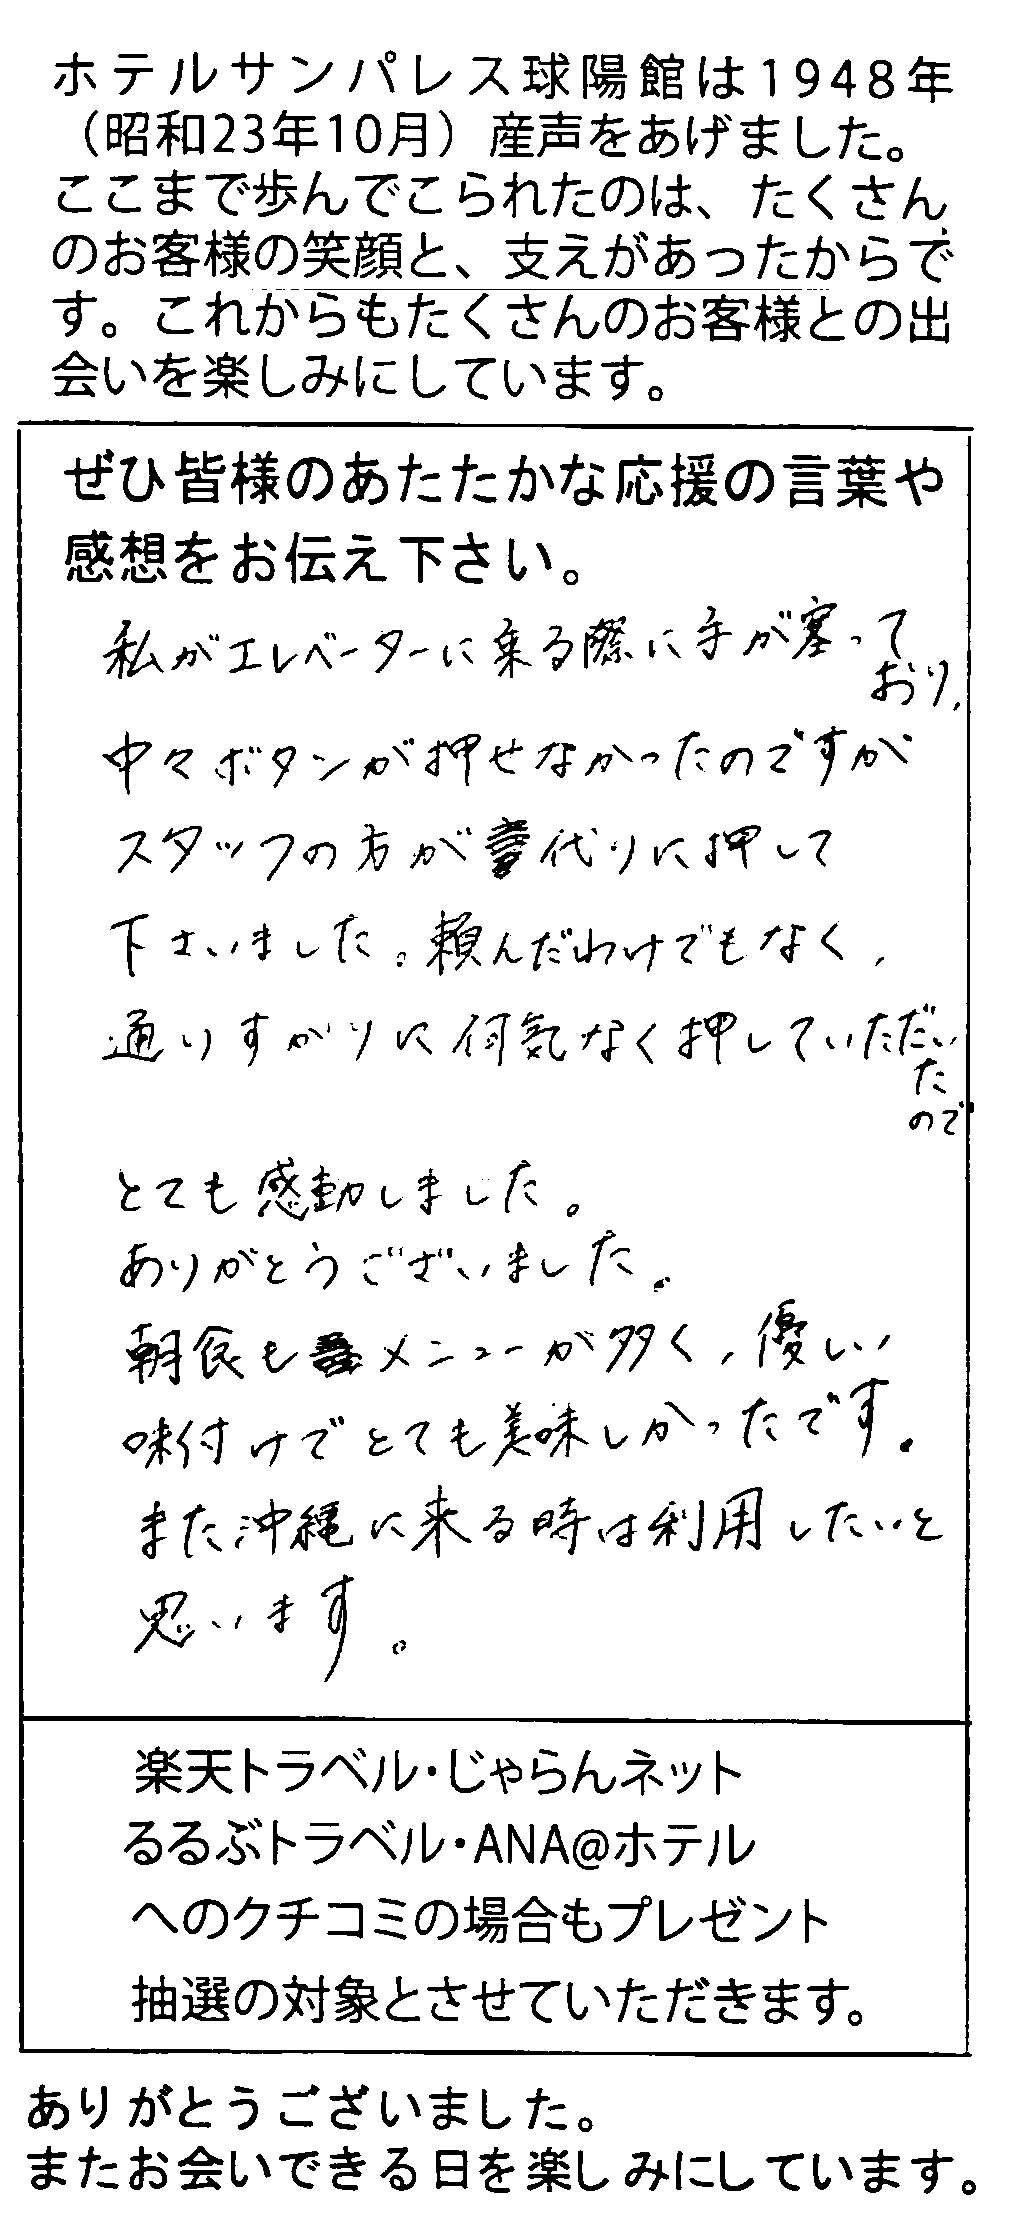 ホテルサンパレス球陽館は1948年
（昭和23年10月）産声をあげました。
ここまで歩んでこられたのは、たくさん
のお客様の笑顔と、支えがあったからで
す。これからもたくさんのお客様との出
会いを楽しみにしています。
ぜひ皆様のあたたかな応援の言葉や
感想をお伝え下さい。
私がエレベーターに乗る際に手が塞って
おり、
中々ボタンが押せなかったのですが
スタッフの方が代りに押して
下さいました。頼んだわけでもなく、
通りすがりに何気なく押していただい
た
ので
とても感動しました。
ありがとうございました。
朝食もメニューが多く、優しい
味付けでとても美味しかったです。
また沖縄に来る時は利用したいと
思います。
楽天トラベル・じゃらんネット
るるぶトラベル・ANA@ホテル
へのクチコミの場合もプレゼント
抽選の対象とさせていただきます。
ありがとうございました。
またお会いできる日を楽しみにしています。